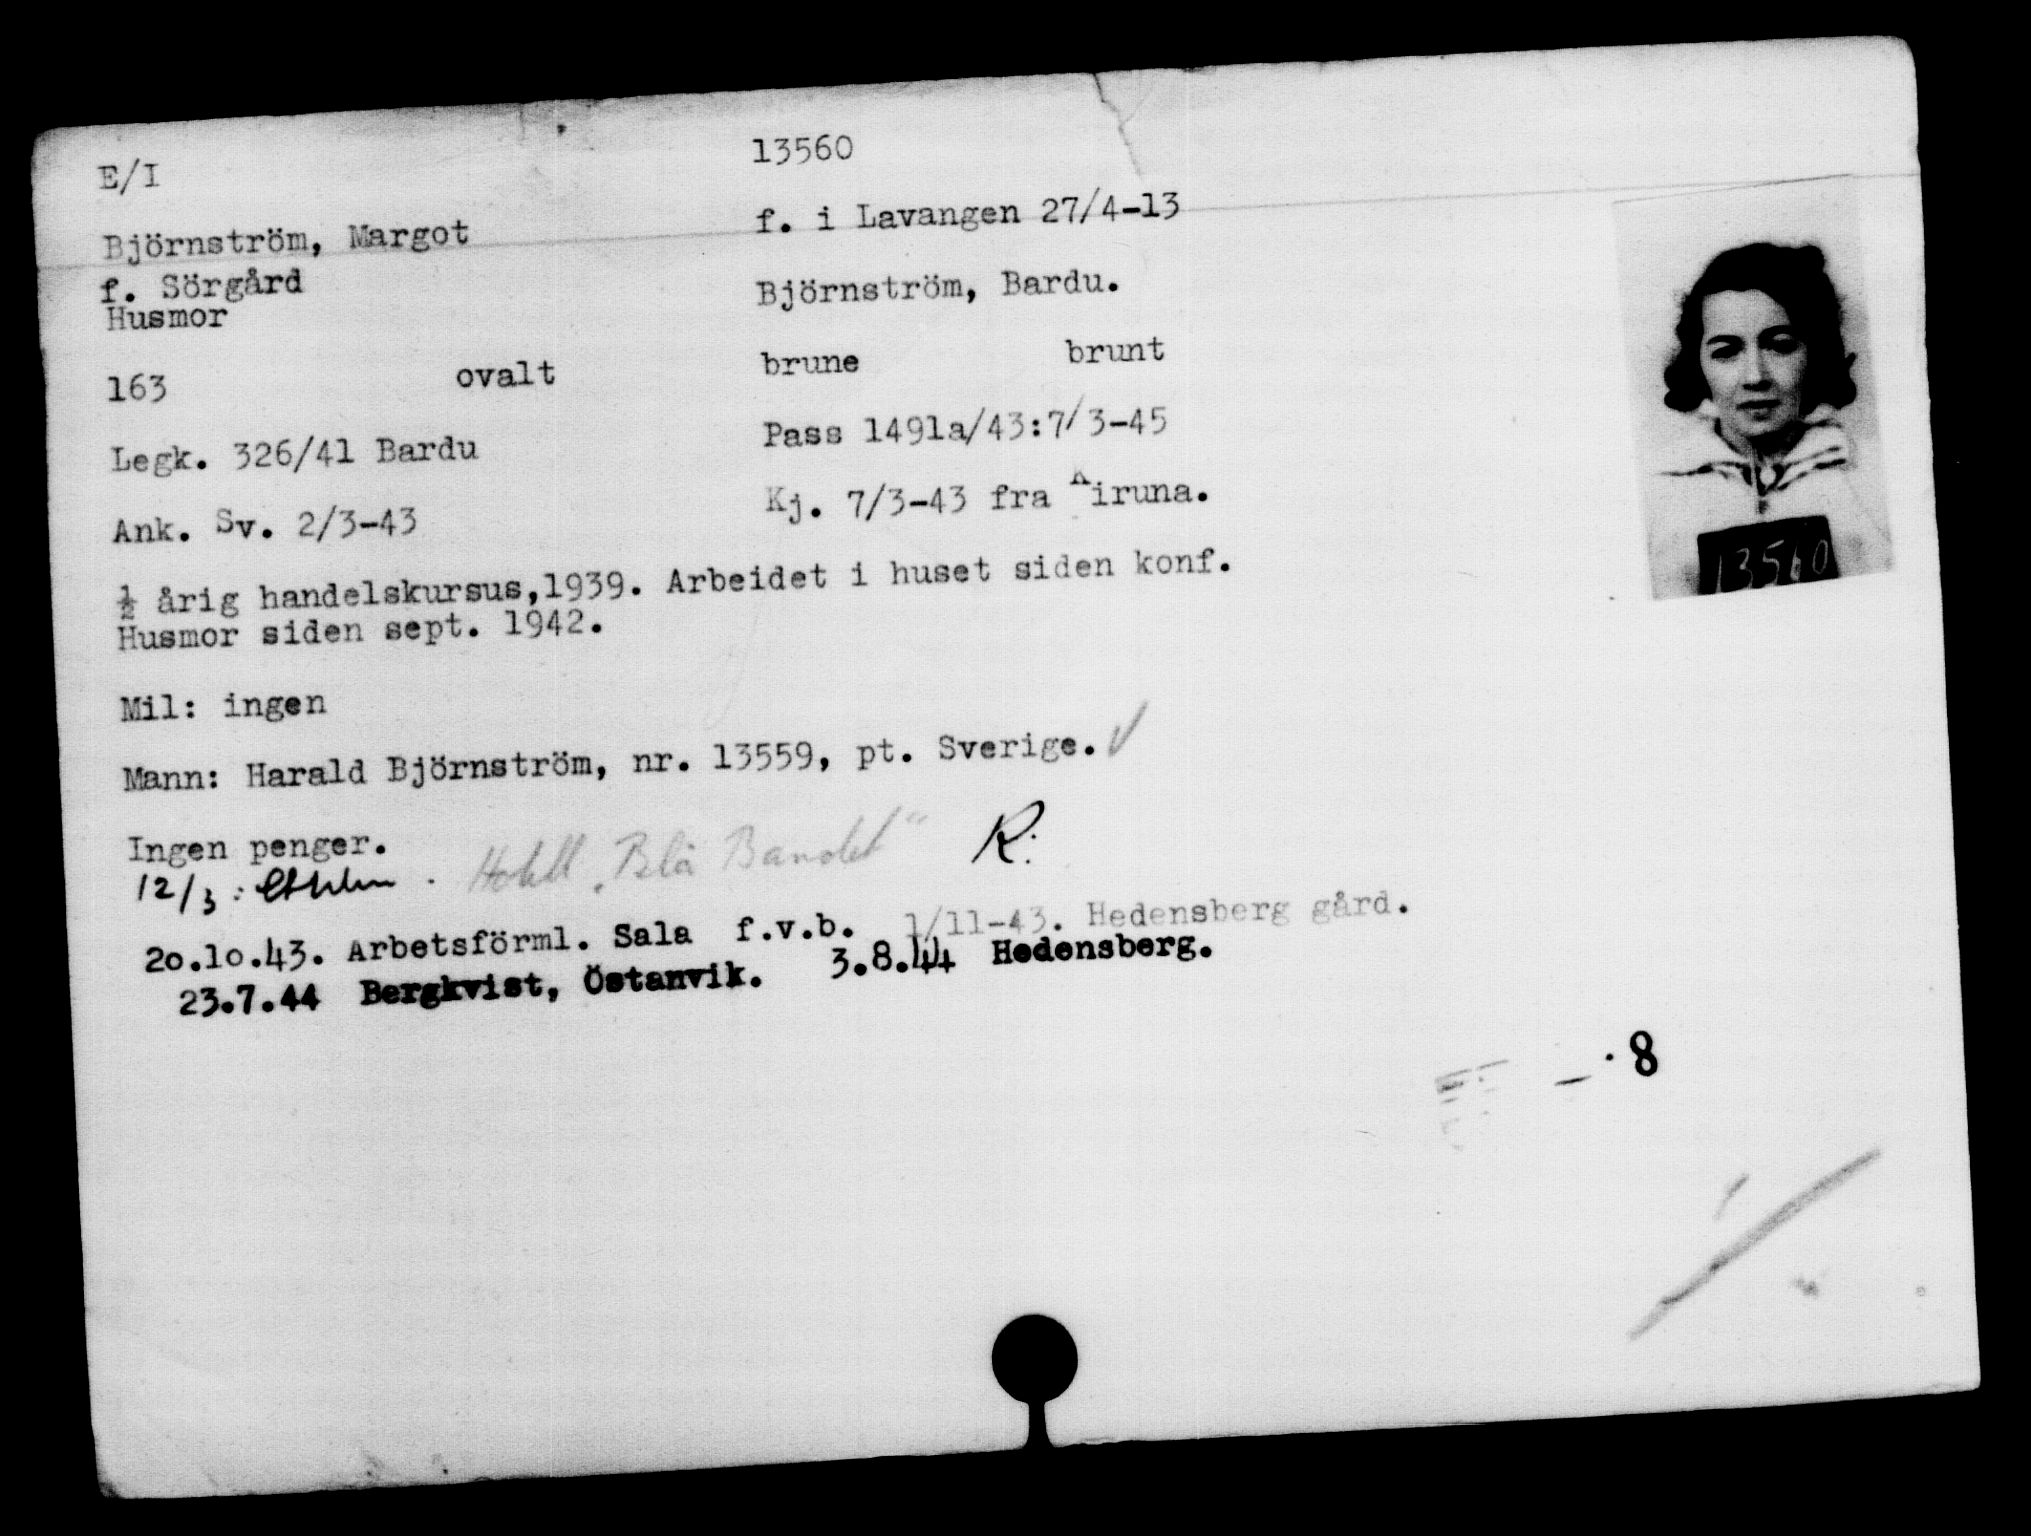 E/I 13560
Björnström, Margot f. i Lavangen 27/4-13
f. Sörgård
Husmor Björnström, Bardu.
163 ovalt brune brunt
Legk. 326/41 Bardu Pass 1491a/43:7/3-45
Ank. Sv. 2/3-43 Kj. 7/3-43 fra Kiruna.
½ årig handelskursus,1939. Arbeidet i huset siden konf.
Husmor siden sept. 1942.
Mil: ingen
Mann: Harald Björnström, nr. 13559, pt. Sverige.
Ingen penger.
12/3: Hotell "Blå Bandet" R.
20.10.43. Arbetsförml. Sala f.v.b. 1/11-43. Hedensberg gård.
23.7.44 Bergkvist, Östanvik. 3.8.44 Hedensberg.
8
13560